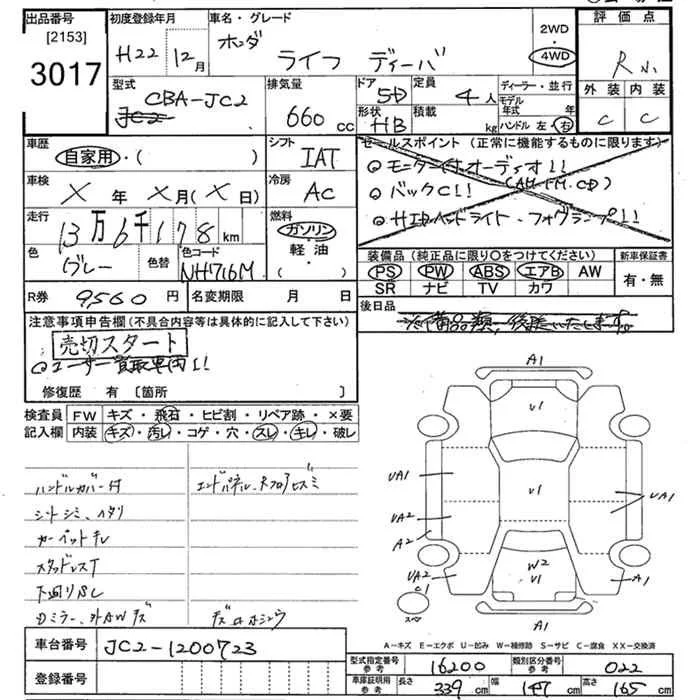 出品番号
[2153]
3017
初度登録年月
H22 12月
車名・グレード
ホンダ ライフ ディーバ
2WD
4WD
評価点
R
外装 内装
C C
型式
CBA-JC2
JC2
排気量
660 cc
ドア
5D
形状
HB
定員
4人
積載
kg
ディーラー・並行
モデル年式 年
ハンドル 左・右
車歴
自家用・( )
シフト
IAT
車検
X年 X月(X日)
冷房
AC
走行
13万6千178km
燃料
ガソリン
軽・油
( )
色
グレー
色替
色コード
NH716M
R券 9560円
名変期限 月 日
セールスポイント(正常に機能するものに限ります)
○モニター付オーディオ!!
(AM.FM.CD)
○バックC!!
○HIDヘッドライト・フォグランプ!!
装備品(純正品に限り○をつけてください)
PS PW ABS エアB AW
SR ナビ TV カワ
新車保証書
有・無
後日品
注意事項申告欄(不具合内容等は具体的に記入して下さい)
売切スタート
○ユーザー買取車両!!
修復歴 有[箇所 ]
検査員記入欄
FW キズ・飛石・ヒビ割・リペア跡・×要
内装 キズ・汚レ・コゲ・穴・スレ・キレ・破レ
ハンドルカバー付
シートシミ、ヘタリ
カーペットキレ
スタッドレスT
下回りSL
Dミラー、外AWキズ
エンドパネル、Rフロア
A1
U1
UA1
U1
UA1
UA2
A2
W2
U1
UA2
C1
A1
スペア
A1
A-キズ E-エクボ U-凹み W-補修跡 S-サビ C-腐食 XX-交換済
車台番号 JC2-1200723
登録番号
型式指定番号参考 16200
類別区分番号参考 022
車庫証明用参考 長さ 339cm 幅 147cm 高さ 165cm